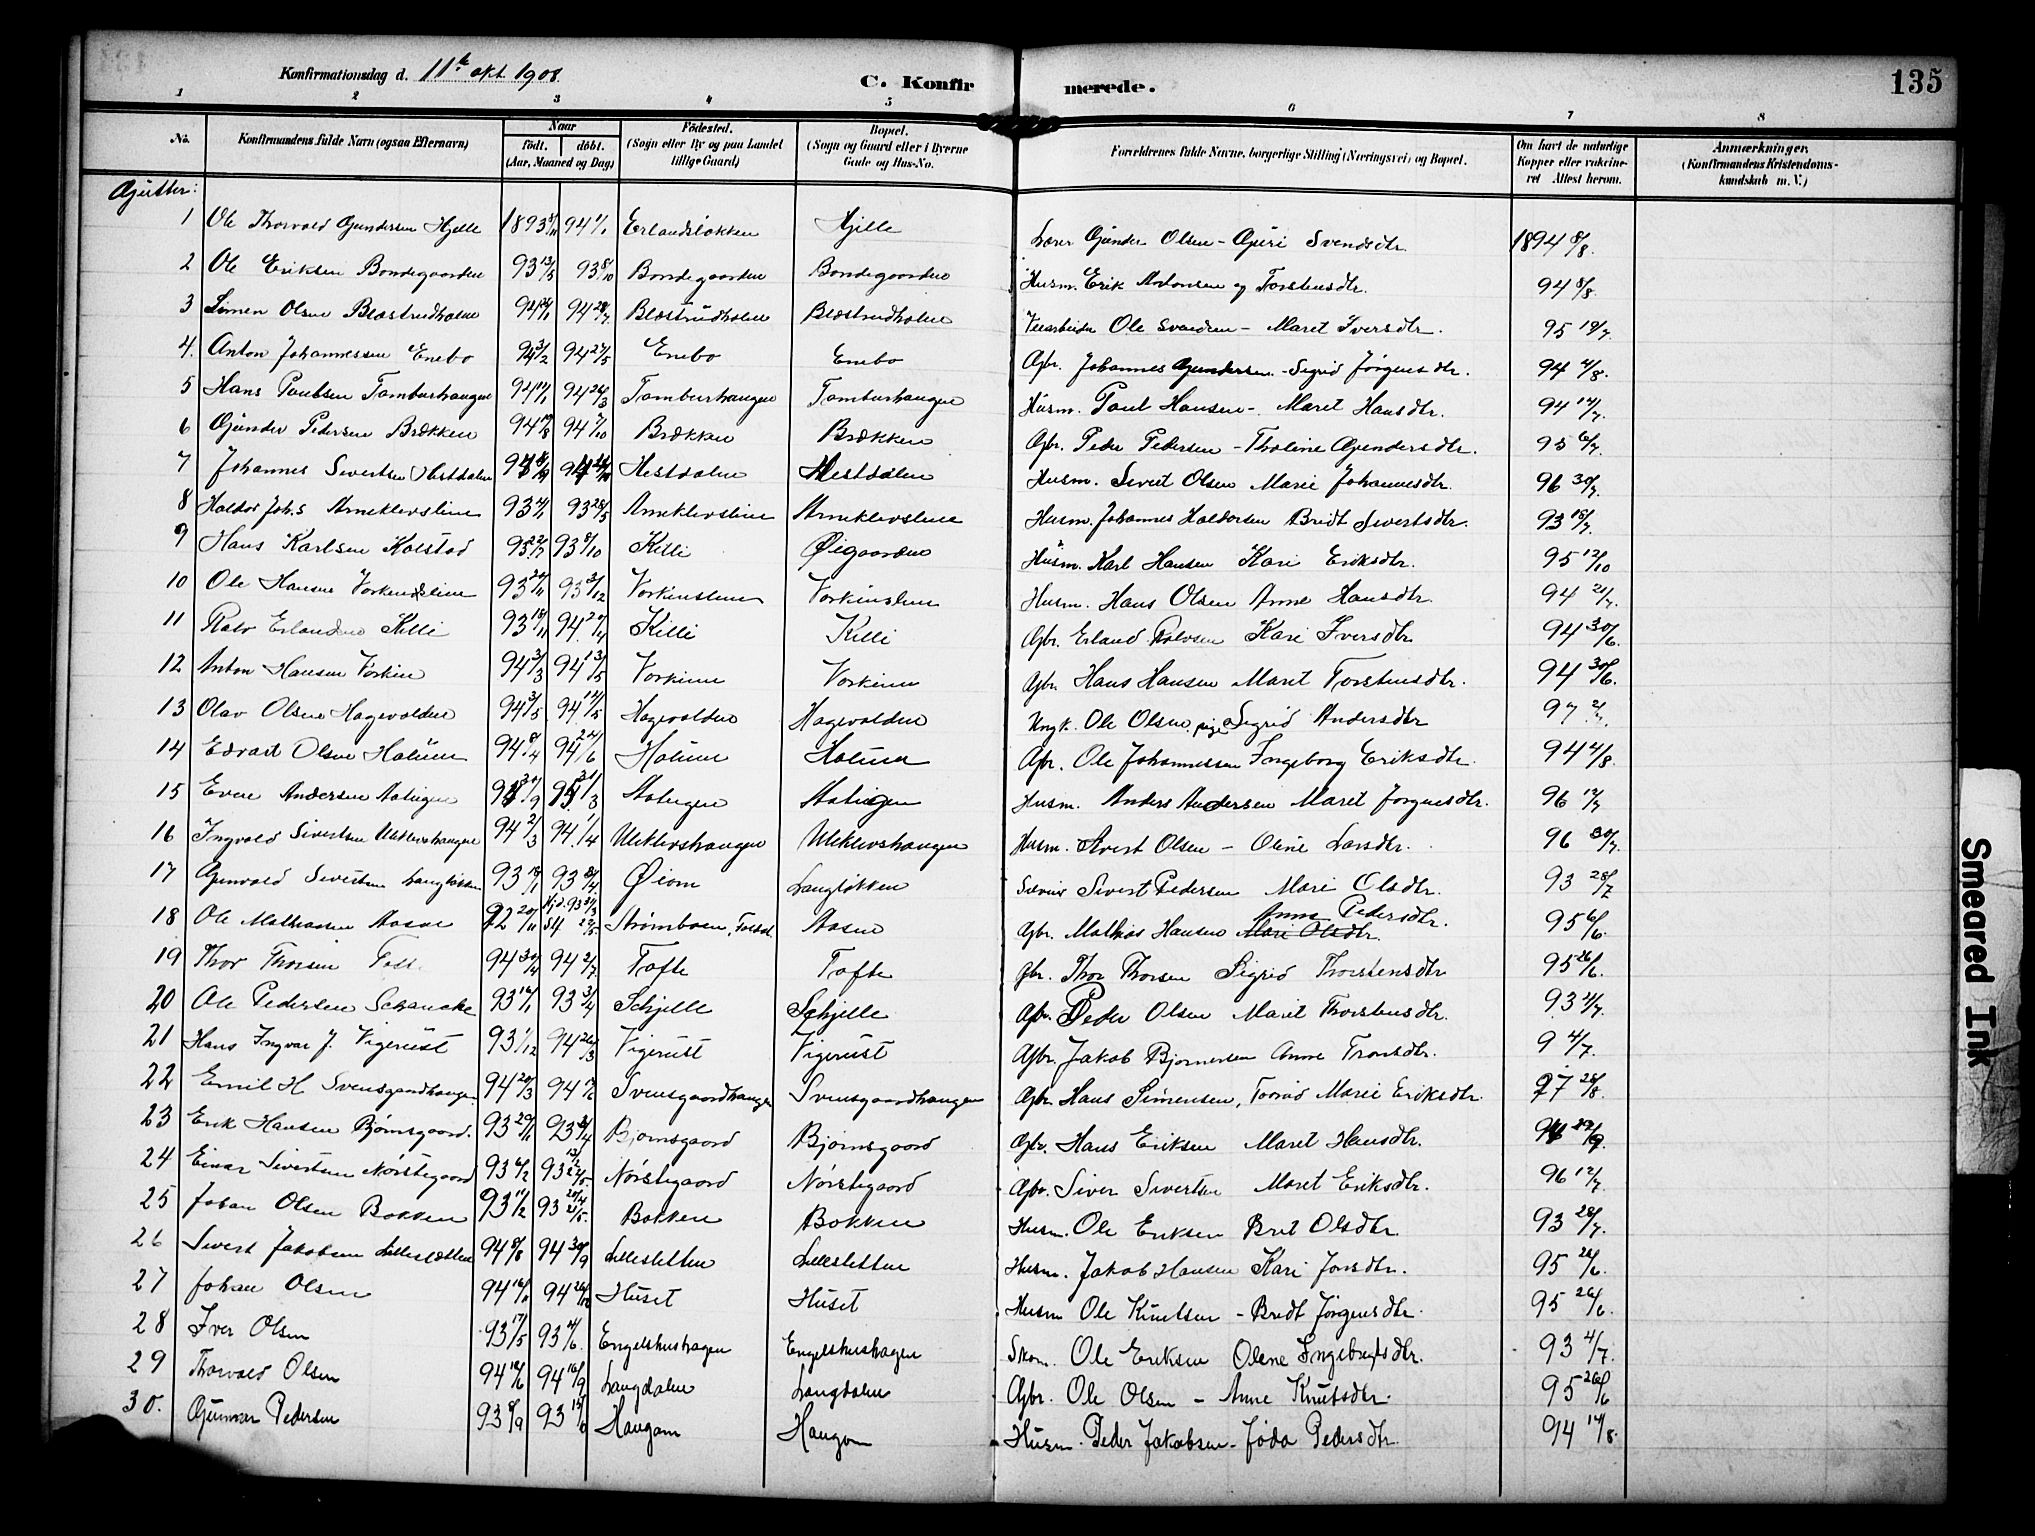 Konfirmationsdag d. 11te okt. 1908.
C. Konfirmerede.
135
1 2 3 4 5 6 7 8
No.
Konfirmandens fulde Navn (ogsaa Efternavn)
Naar
født. døbt.
(Aar, Maaned og Dag)
Fødested.
(Sogn eller By og paa Landet tillige Gaard)
Bopæl.
(Sogn og Gaard eller i Byerne Gade og Hus-No.
Forældrenes fulde Navne, borgerlige Stilling (Næringsvei) og Bopæl.
Om havt de naturlige Kopper eller vakcineret Attest herom.
Anmærkninger.
(Konfirmandens Kristendomskundskab m. V.)
Gutter:
1 Ole Thorvald Gundersen Hjelle 1893 94 Erlandsløkken Hjelle Lærer Gunder Olsen - Guri Svendsdtr. 1894 8/8.
2 Ole Eriksen Bondegaarden 93 13/5 93 8/10 Bondegaarden Bondegaarden Husm. Erik Antonsen og Torstensdtr. 94 8/8
3 Simen Olsen Blæstrudholen 94 94 Blæstrudholen Blæstrudholen Veiarbeider Ole Svendsen - Maret Iversdtr. 95 19/7.
4. Anton Johannessen Enebo 94 3/2 94 27/5 Enebo Enebo Gbr. Johannes Gundersen - Sigrid Jørgensdtr. 94 4/8.
5 Hans Paulsen Tamburhaugen 94 94 26/3 Tamburhaugen Tamburhaugen Husm. Paul Hansen - Maret Hansdtr. 94 14/7.
6 Gunder Pedersen Brækken 94 94 Brækken Brækken Gbr. Peder Pedersen - Tholine Gundersdtr. 95 6/7.
7 Johannes Sivertsen Hestdalen Hestdalen Hestdalen Husm. Sivert Olsen Marie Johannesdtr. 96 30/7.
8 Haldor Joh.s Arneklevslien 93 93 28/5 Arneklevslien Arneklevslien Husm. Johannes Haldorsen Bredt Sivertsdtr. 93 18/7.
9 Hans Karlsen Kolstad 93 8/10 Killi Øigaarden Husm. Karl Hansen Kari Eriksdtr. 95 12/10
10 Ole Hansen Vorkinslien 93 93 3/12 Vorkinslien Vorkinslien Husm. Hans Olsen Anne Hansdtr. 94 21/7.
11 Rolv Erlandsen Killi 93 18/11 94 Killi Killi Gbr. Erland Rolvsen Kari Iversdtr 94 30/6.
12 Anton Hansen Vorkinn 94 3/3 94 13/5 Vorkinn Vorkinn Gbr. Hans Hansen Maret Torstensdtr. 94 30/6.
13 Olav Olsen Hagevolden 94 3/5 94 14/5 Hagevolden Hagevolden Ungk. Ole Olsen, pige Sigrid Andersdtr 97
14 Edvart Olsen Holum 94 8/4 94 24/6 Holum Holum Gbr. Ole Johannessen Ingeborg Eriksdtr. 94 4/8.
15 Even Andersen Aalingen Aalingen Aalingen Husm. Anders Andersen Maret Jørgensdtr. 96 12/7
16 Ingvald Sivertsen Uleklevshaugen 94 2/3 94 1/4 Uleklevshaugen Uleklevshaugen Husm. Sivert Olsen - Oline Larsdtr. 96 30/7.
17 Gunvald Sivertsen Langløkken 93 93 Øiom Langløkken Sivert Pedersen Mari Olsdtr. 93 28/7
18 Ole Mathiasen Aasen 92 20/11 Strømboen, Foldal Aasen Gbr. Mathias Hansen Anne Pedersdtr. Mari Olsdtr. 95 6/6.
19 Thor Thorsen Tofte 94 30/4 94 2/7 Tofte Tofte Gbr. Thor Thorsen Sigrid Thorstensdtr 95 26/6.
20 Ole Pedersen Schancke 93 16/1 93 3/4 Selsjelle Gbr. Peder Olsen Marit Thorstensdtr. 93 4/7.
21 Hans Ingvar J. Vigerust 93 1/12 94 26/3 Vigerust Vigerust Gbr. Jakob Bjørnersen Anne Tronsdtr. 9 4/7.
22 Emil H. Svensgaardhaugen 94 20/3 94 Svensgaardhaugen Svensgaardhaugen Gbr. Hans Simensen, Marie Eriksdtr. 97 28/8.
23 Erik Hansen Bjørnsgaard. 93 93 Bjørnsgaard Bjørnsgaard Gbr. Hans Eriksen Maret Hansdtr. 29/9.
24 Einar Sivertsen Nørstegaard 93 6/2 93 Nørstegaard Nørstegaard Gbr. Siver Sivertsen Maret Eriksdtr. 96 12/7.
25 Johan Olsen Bakken 93 93 Bakken Bakken Husm. Ole Eriksen Brit Olsdtr. 93 28/7.
26 Sivert Jakobsen Lilleslætten 94 8/8 94 30/9 Lillesletten Lillesletten Husm. Jakob Hansen Kari Jonsdtr. 95 26/6.
27 Johan Olsen 94 94 Huset Huset Husm Ole Knutsen - Bredt Jørgensdtr. 95 26/6.
28 Iver Olsen 93 17/5 93 Engelshushagen Engelshushagen Skom. Ole Eriksen Olene Ingebrigtsdtr. 93 4/7.
29 Thorvald Olsen 94 94 16/9 Langdalen Langdalen Gbr. Ole Olsen - Anne Knutsdtr. 95 26/6
30. Gunnar Pedersen 93 8/9 93 Haugom Haugom Husm. Peder Jakobsen - Jøda Pedersdtr. 94 14/8.
Smeared Ink